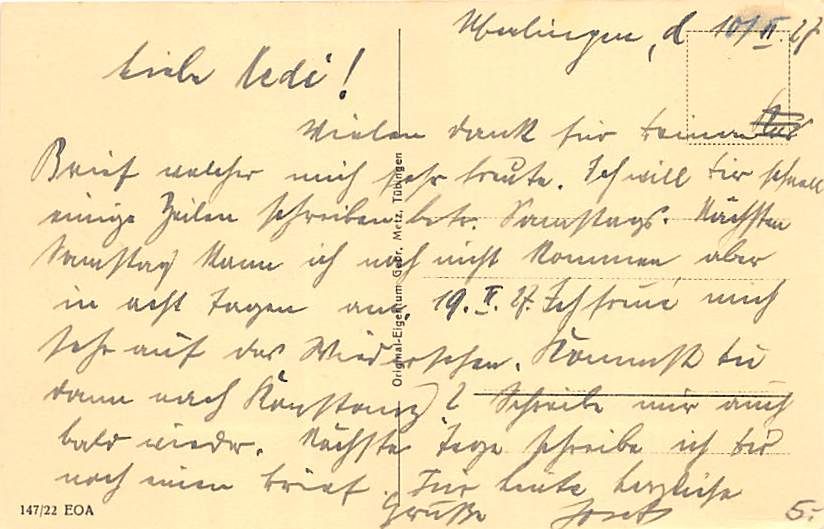 Überlingen, d 10/II. 27
Liebe Hedi!
Vielen Dank für Deinen
Brief welcher mich sehr freute. Ich will Dir schnell
einige Zeilen schreiben betr. Samstags. Nächsten
Samstag kann ich noch nicht kommen aber
in acht Tagen am 19. II. 27. Ich freue mich
sehr auf das Wiedersehen. Kommst Du
dann nach Konstanz? Schreibe mir auch
bald wieder. Nächste Tage schreibe ich Dir
noch einen Brief. Für heute herzliche
Grüße Josef
5.-
Original-Eigentum Gebr. Metz, Tübingen
147/22 EOA